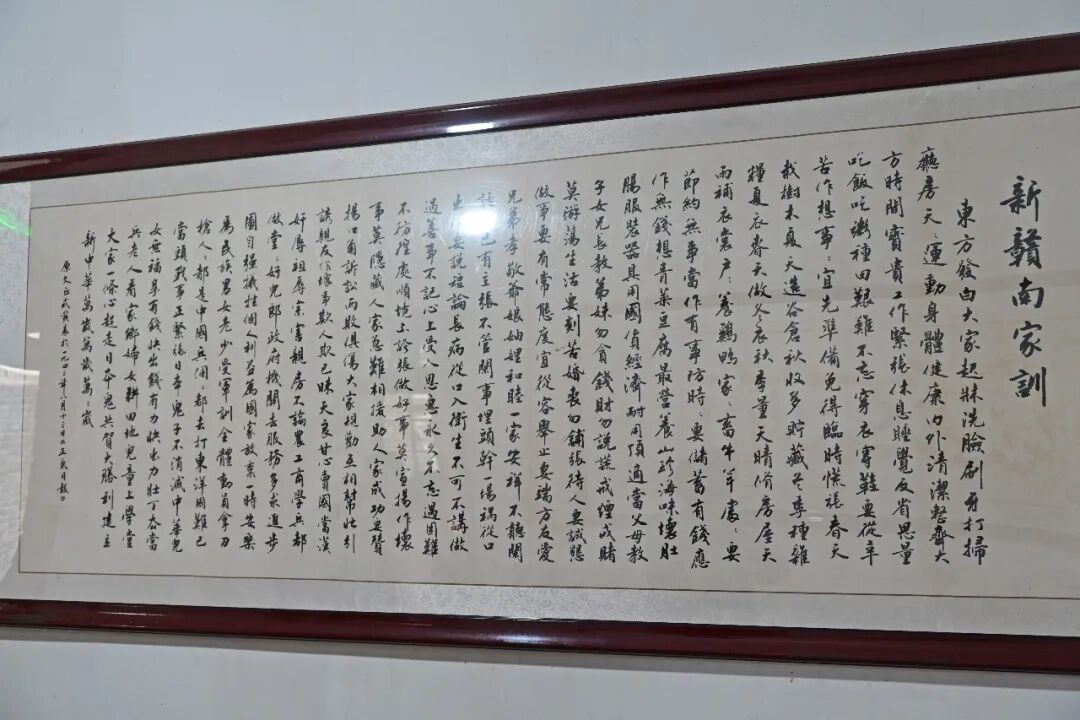 新贛南家訓
東方發白大家起牀洗臉刷牙打掃
廳房天〻運動身體健康內外清潔整齊大
方時間寶貴工作緊張休息睡覺反省思量
吃飯吃粥種田艱難不忘穿衣穿鞋要從辛
苦作想事〻宜先準備免得臨時慌張春天
栽樹木夏天造谷倉秋收多貯藏冬季種雜
糧夏衣春天做冬衣秋季量天晴修房屋天
而補衣裳戶〻養鷄鴨家〻畜牛羊處〻要
節約無事當作有事防時〻要儲蓄有錢應
作無錢想青菜豆腐最營養山珍海味壞肚
腸服裝器具用國貨經濟耐用頂適當父母教
子女兄長教弟妹勿貪錢財勿說謊戒煙戒賭
莫游蕩生活要刻苦婚喪勿鋪張待人要誠懇
做事要有常態度宜從容舉止要端方友愛
兄弟孝敬爺娘妯娌和睦一家安祥不聽閒
話自己有主張不管閒事埋頭幹一場禍從口
出要說理論長病從口入衛生不可不講做
過善事不記心上受人恩惠永久不忘遇困難
不彷徨處順境不誇張做好事莫宣揚作壞
事莫隱藏人家急難相援助人家成功要贊
揚口角訴訟兩敗俱傷大家規勸互相幫忙引
誘親友作壞事欺人欺己昧天良甘心賣國當漢
奸辱祖辱宗害親房不論農工商學兵都
做堂〻好兒郎政府機關去服務多求進步
圖自強犧牲個人利益爲國家放棄一時安樂
爲民族男女老少受軍訓全體動員拿刀
槍人〻都是中國兵個〻都去打東洋國難已
當頭戰事正緊張日本鬼子不消滅中華兒
女無福享有錢快出錢有力快出力壯丁去當
兵老人看家鄉婦女耕田地兒童上學堂
大家一條心趕走日本鬼共賀大勝利建立
新中華萬歲萬歲萬〻歲